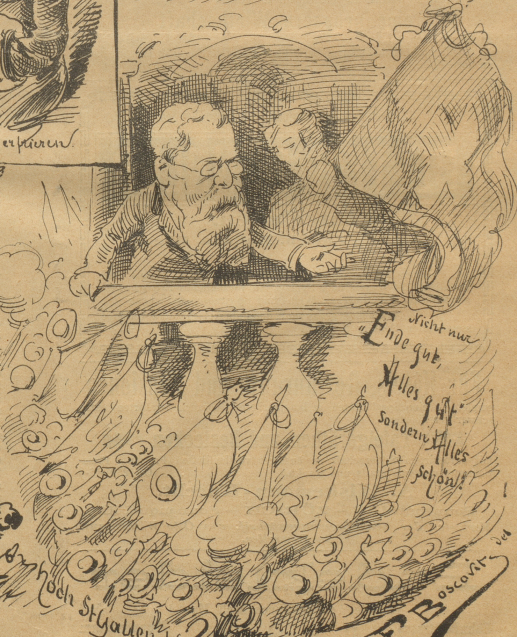 erfrieren
Nicht nur
"Ende gut,
Alles gut"
sondern Alles
schön!
hoch St Gallen
F Boscovits del